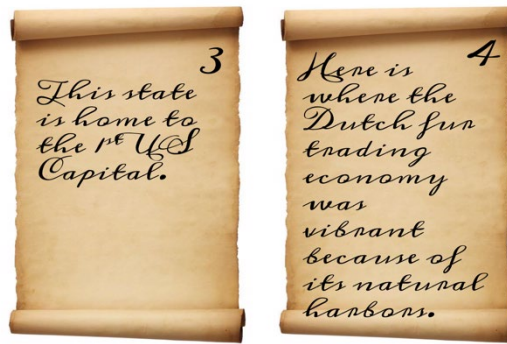 3
This state
is home to
the 1st US
Capital.
4
Here is
where the
Dutch fur
trading
economy
was
vibrant
because of
its natural
harbors.